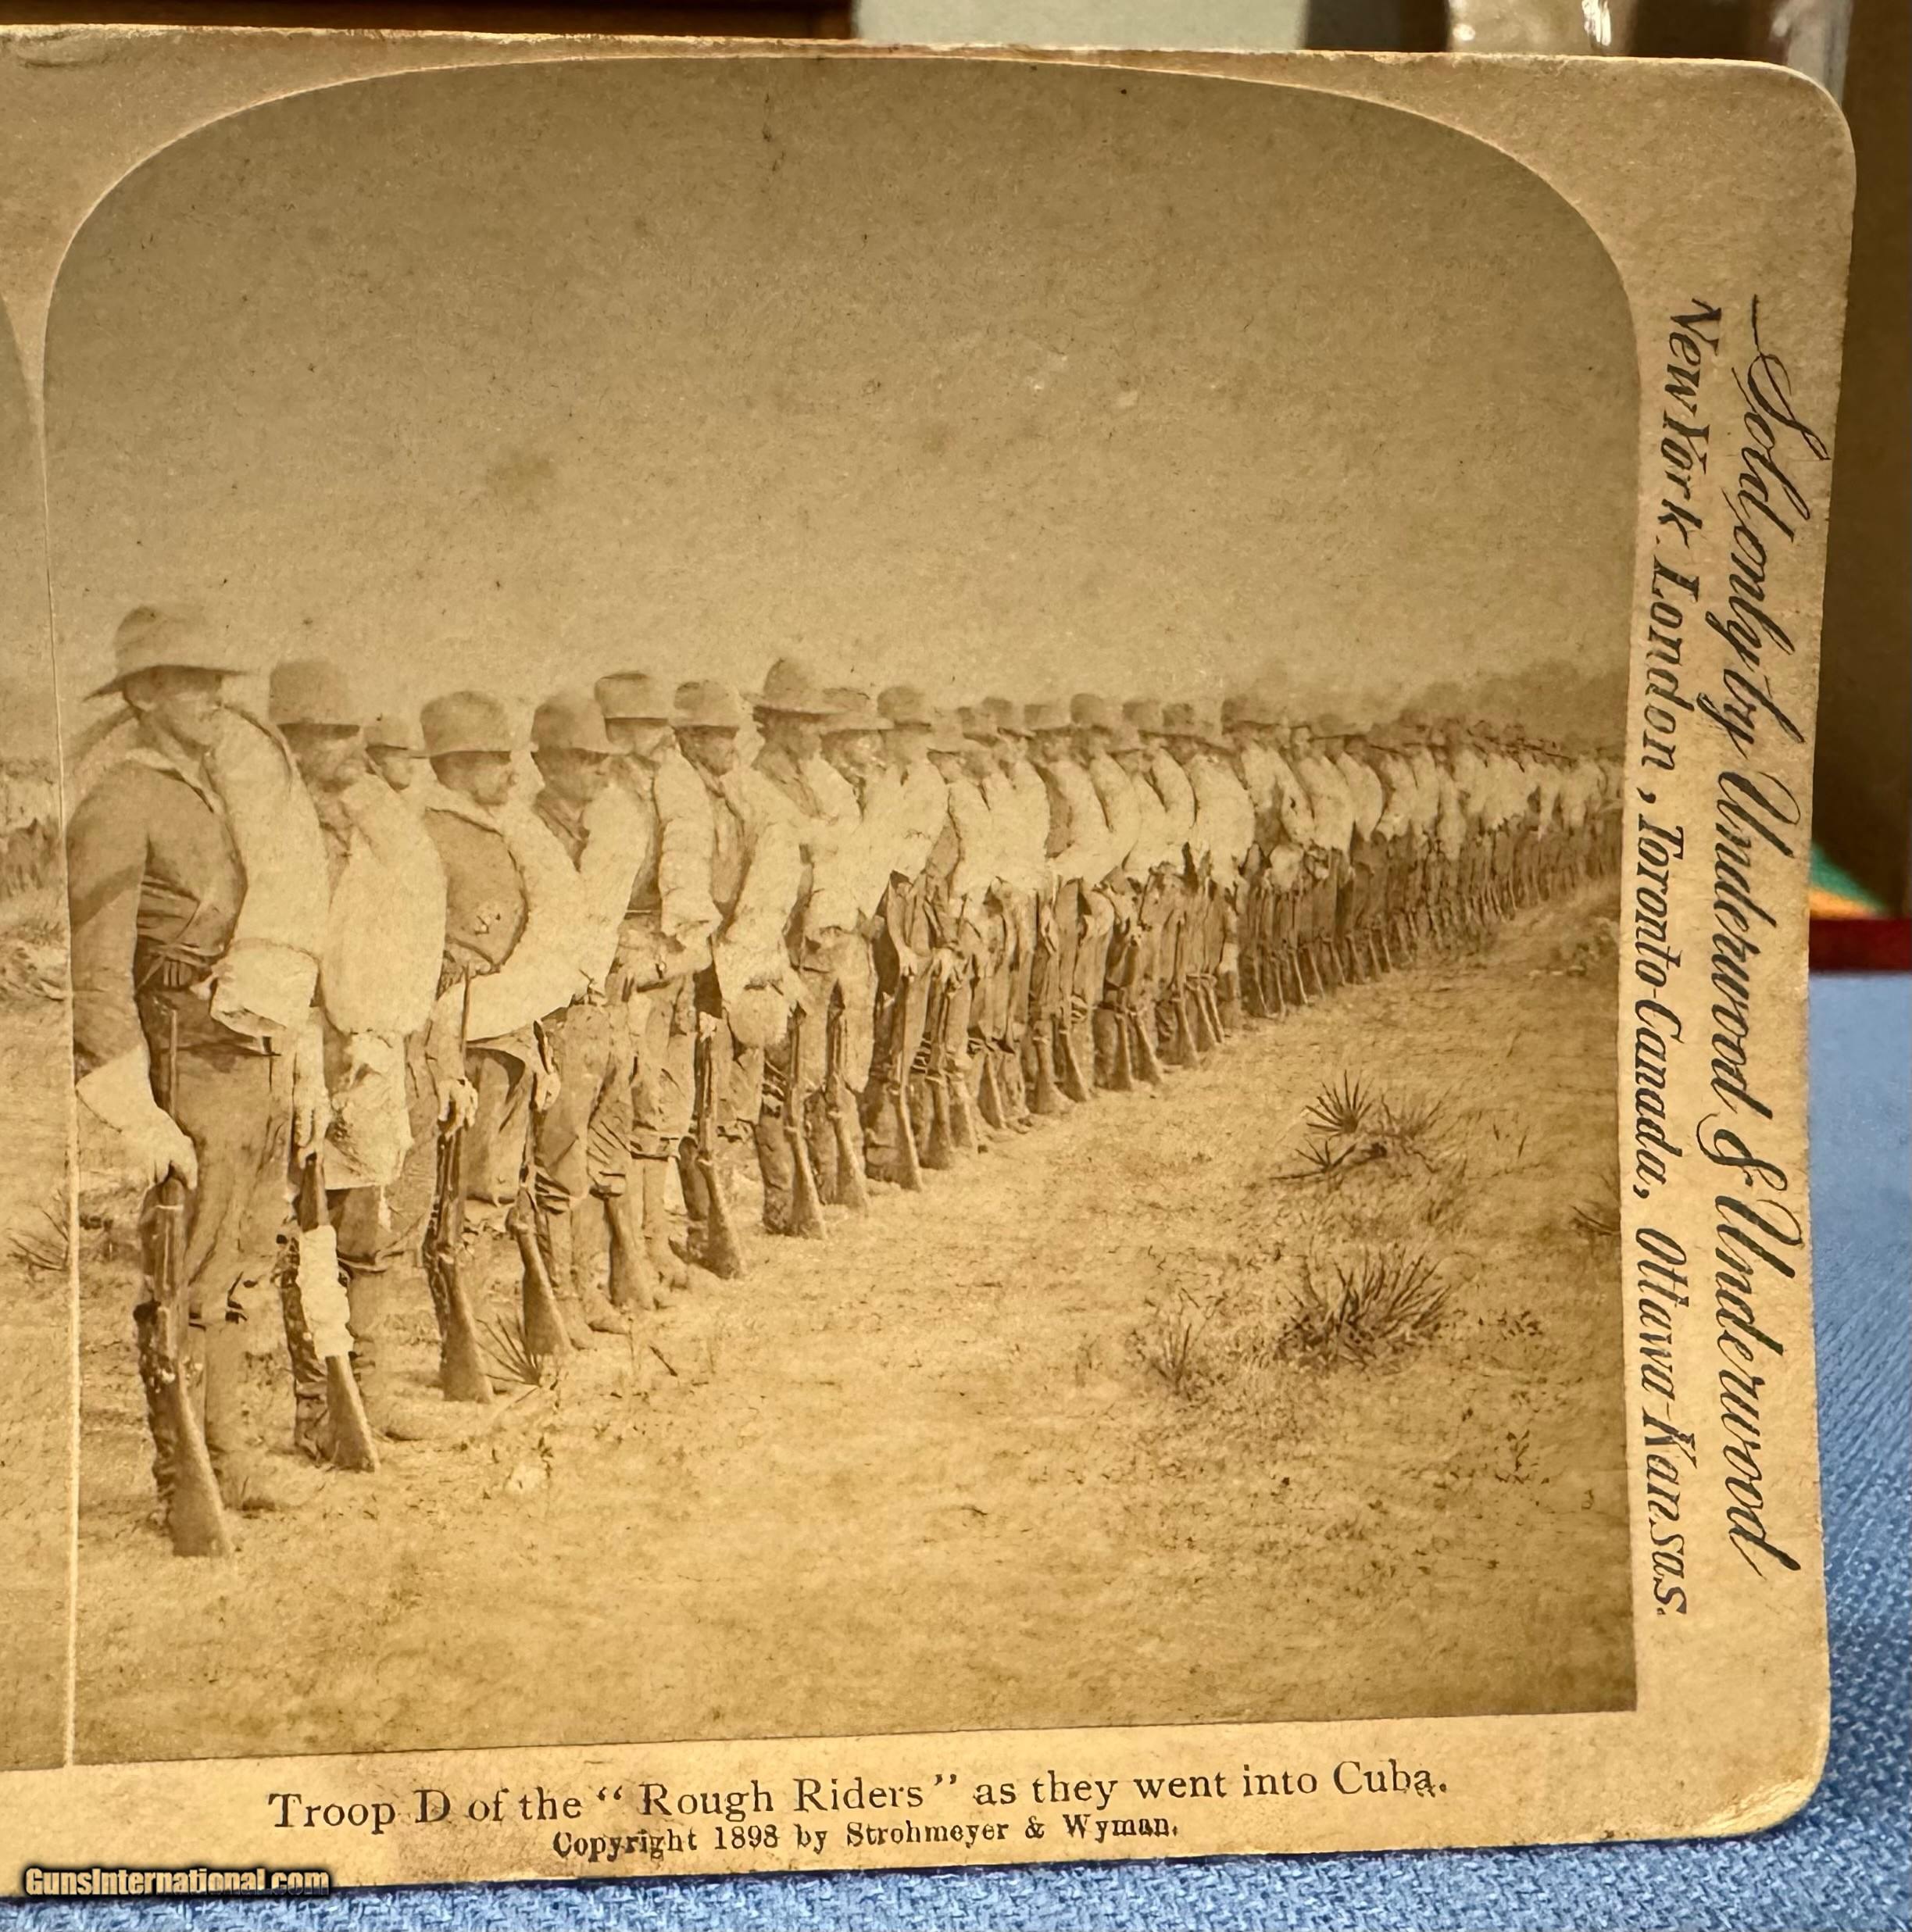 Sold only by Underwood & Underwood
New York, London, Toronto-Canada, Ottawa-Kansas.
Troop D of the “ Rough Riders ” as they went into Cuba.
Copyright 1898 by Strohmeyer & Wyman.
GunsInternational.com